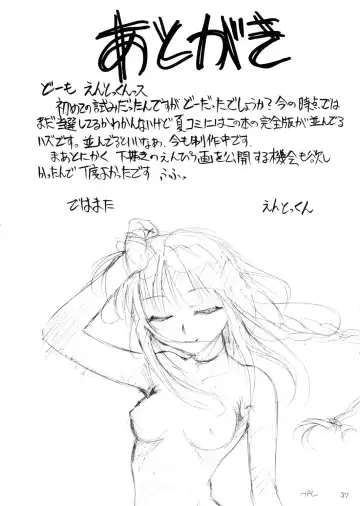 あとがき
どーも えんとっくんっス
初めての試みだったんですがどーだったでしょうか？今の時点では
まだ当選してるかわかんないけど夏コミにはこの本の完全版が並んでる
ハズです。並んでるといいなぁ、今も制作中です。
まぁとにかく 下描きのえんぴつ画を公開する機会も欲し
かったんで丁度よかったです ふふっ
ではまた えんとっくん
HAL 37